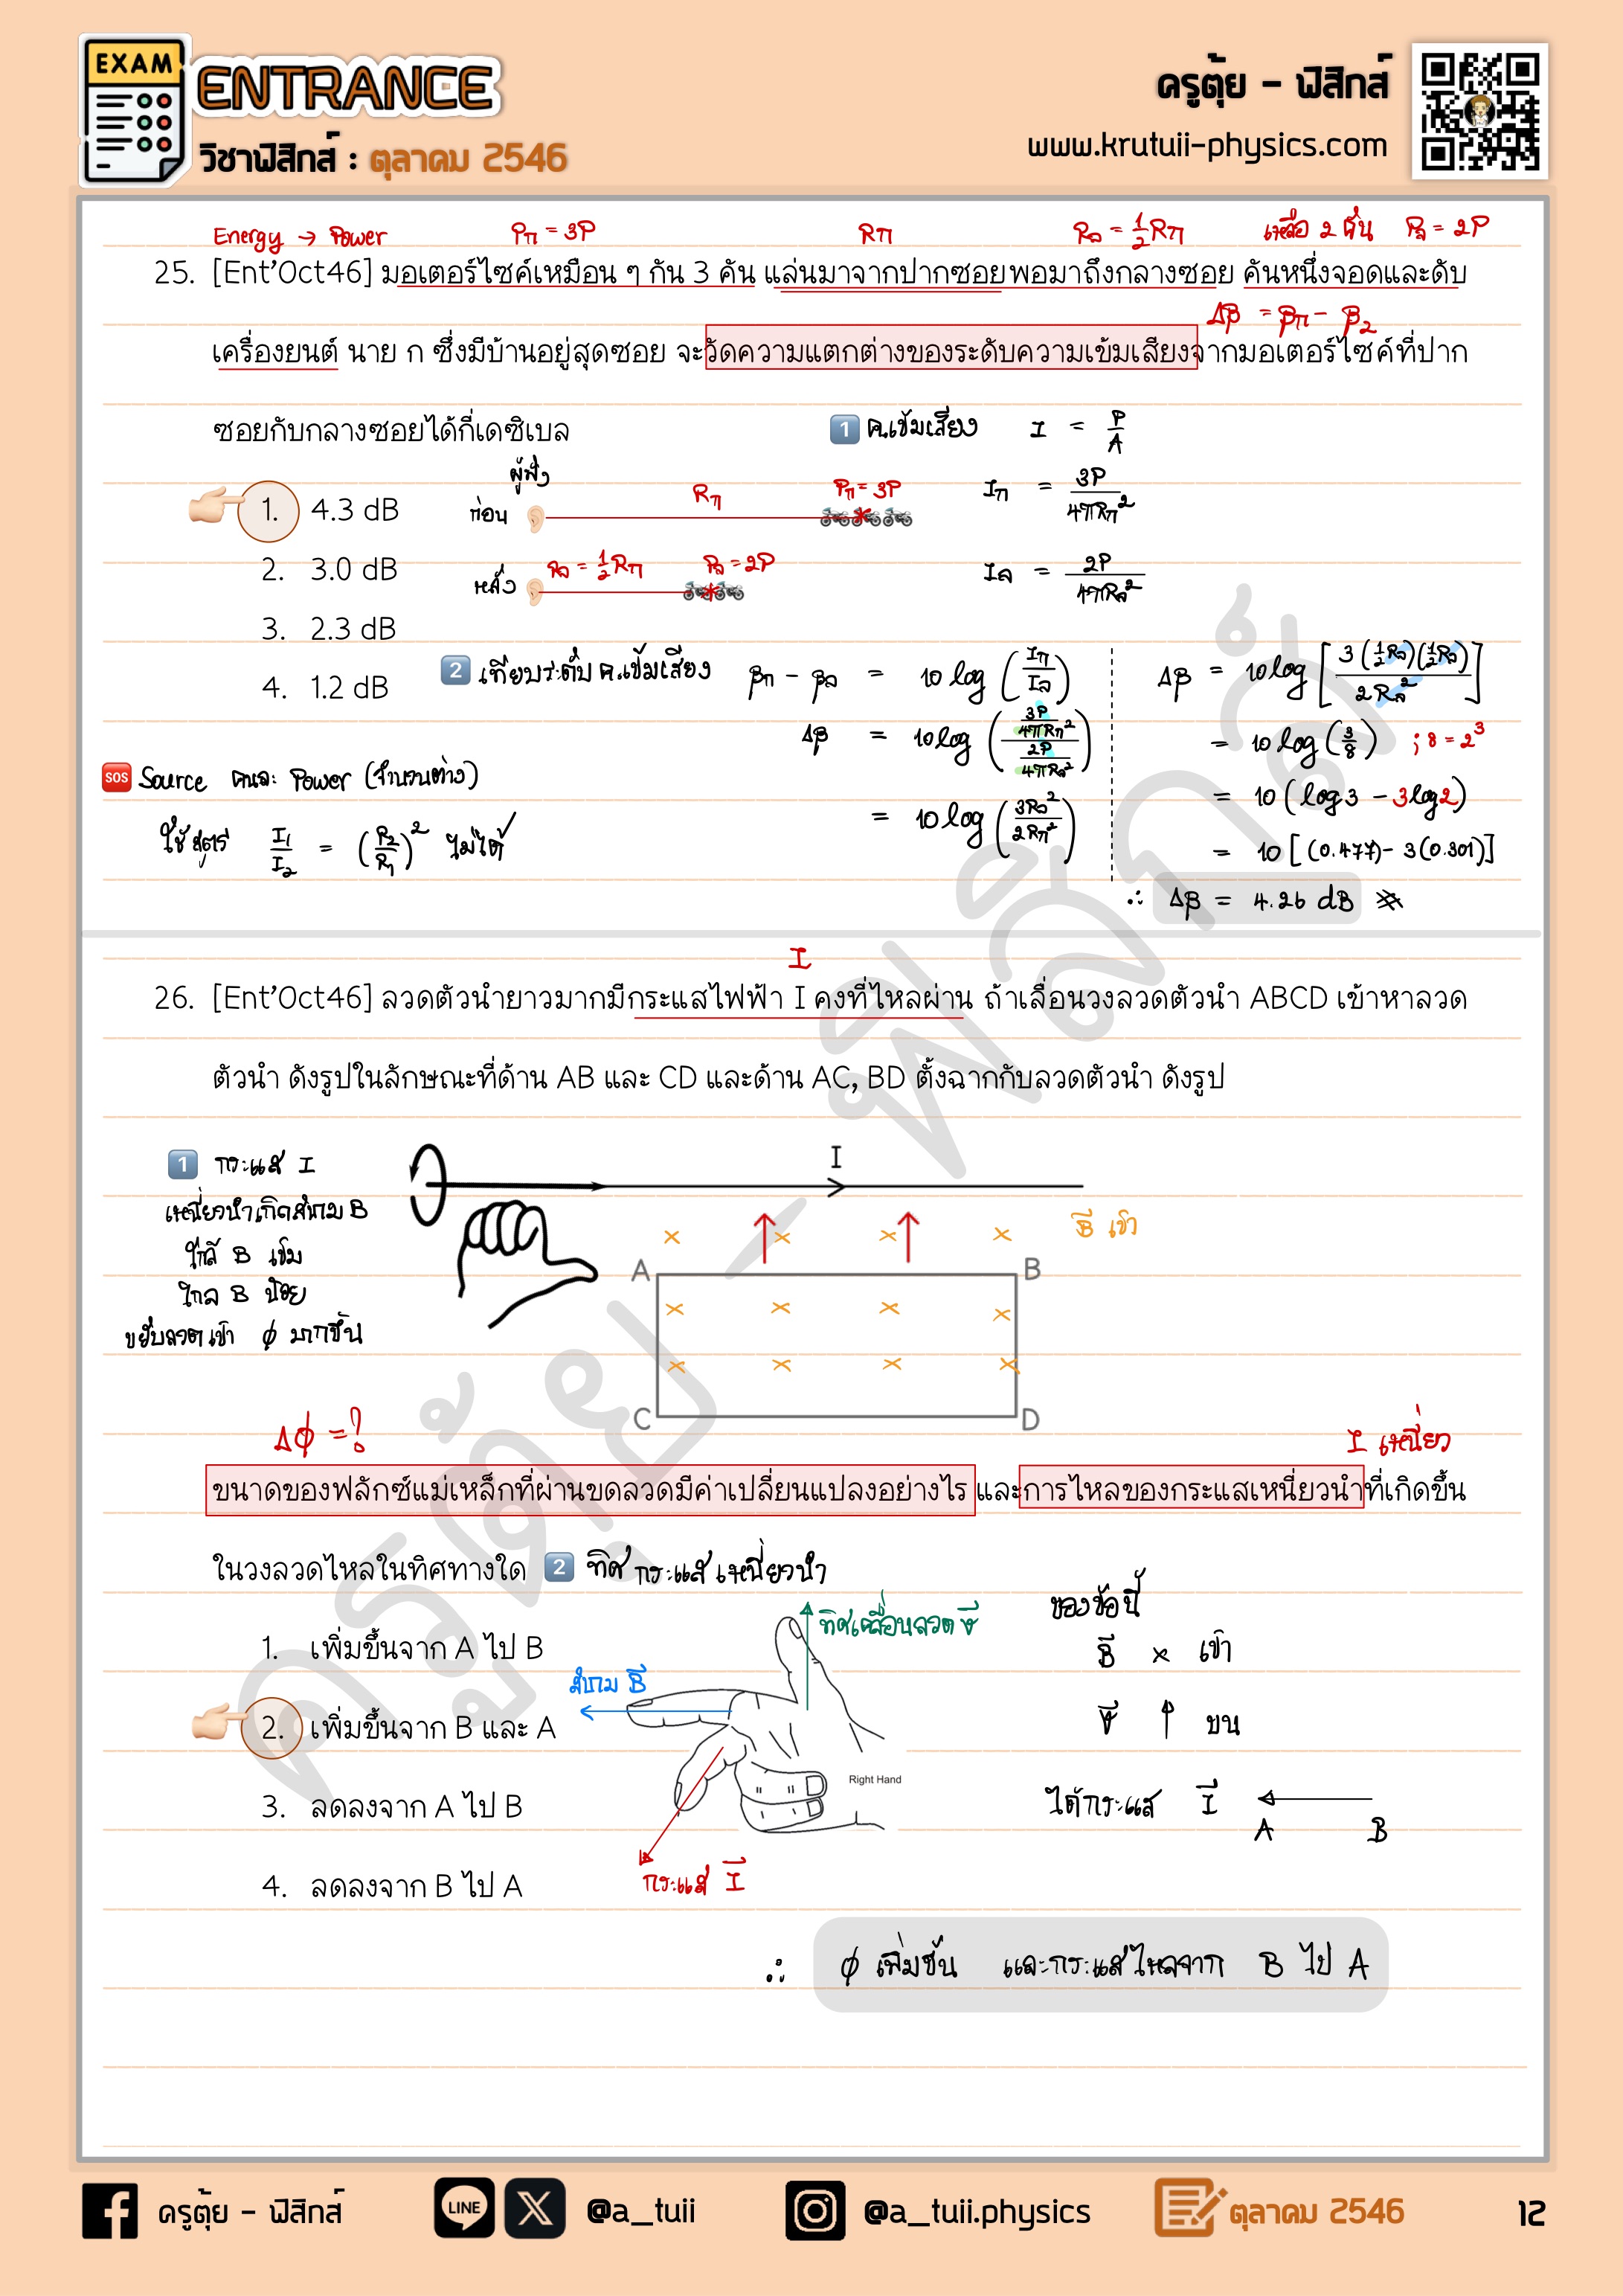 EXAM
ENTRANCE
วิชาฟิสิกส์ : ตุลาคม 2546
ครูตุ้ย - ฟิสิกส์
www.krutuii-physics.com
Energy → Power Pก = 3P Rก Rล = ½Rก เหลือ 2 คัน Pล = 2P
25. [Ent'Oct46] มอเตอร์ไซค์เหมือน ๆ กัน 3 คัน แล่นมาจากปากซอยพอมาถึงกลางซอย คันหนึ่งจอดและดับ
Δβ = βก - β2
เครื่องยนต์ นาย ก ซึ่งมีบ้านอยู่สุดซอย จะวัดความแตกต่างของระดับความเข้มเสียงจากมอเตอร์ไซค์ที่ปาก
ซอยกับกลางซอยได้กี่เดซิเบล
1 ค.เข้มเสียง I = P/A
ผู้ฟัง
1. 4.3 dB
ก่อน Rก Pก = 3P
Iก = 3P/4πRก²
2. 3.0 dB
หลัง Rล = ½Rก Pล = 2P
Iล = 2P/4πRล²
3. 2.3 dB
4. 1.2 dB
2 เทียบระดับ ค.เข้มเสียง βก - βล = 10 log (Iก/Iล)
Δβ = 10 log ((3P/4πRก²)/(2P/4πRล²))
= 10 log (3Rล²/2Rก²)
Δβ = 10 log [3(½Rล)(½Rล)/2Rล²]
= 10 log (3/8) ; 8 = 2³
= 10 (log3 - 3log2)
= 10 [(0.477) - 3(0.301)]
∴ Δβ = 4.26 dB
SOS Source คนละ Power (จำนวนต่าง)
ใช้สูตร I₁/I₂ = (R₂/R₁)² ไม่ได้
I
26. [Ent'Oct46] ลวดตัวนำยาวมากมีกระแสไฟฟ้า I คงที่ไหลผ่าน ถ้าเลื่อนวงลวดตัวนำ ABCD เข้าหาลวด
ตัวนำ ดังรูปในลักษณะที่ด้าน AB และ CD และด้าน AC, BD ตั้งฉากกับลวดตัวนำ ดังรูป
1 กระแส I
เหนี่ยวนำเกิดสนาม B
ใกล้ B เข้ม
ไกล B น้อย
ขยับลวดเข้า ϕ มากขึ้น
I
B เข้า
A
B
C
D
Δϕ = ?
I เหนี่ยว
ขนาดของฟลักซ์แม่เหล็กที่ผ่านขดลวดมีค่าเปลี่ยนแปลงอย่างไร และการไหลของกระแสเหนี่ยวนำที่เกิดขึ้น
ในวงลวดไหลในทิศทางใด
2 ทิศกระแสเหนี่ยวนำ
1. เพิ่มขึ้นจาก A ไป B
2. เพิ่มขึ้นจาก B และ A
3. ลดลงจาก A ไป B
4. ลดลงจาก B ไป A
ทิศเคลื่อนลวด v
สนาม B
Right Hand
กระแส I
ของข้อนี้
B × เข้า
v ↑ บน
ได้กระแส I ←
A B
∴ ϕ เพิ่มขึ้น และกระแสไหลจาก B ไป A
ครูตุ้ย - ฟิสิกส์
ครูตุ้ย - ฟิสิกส์
LINE
@a_tuii
@a_tuii.physics
ตุลาคม 2546
12